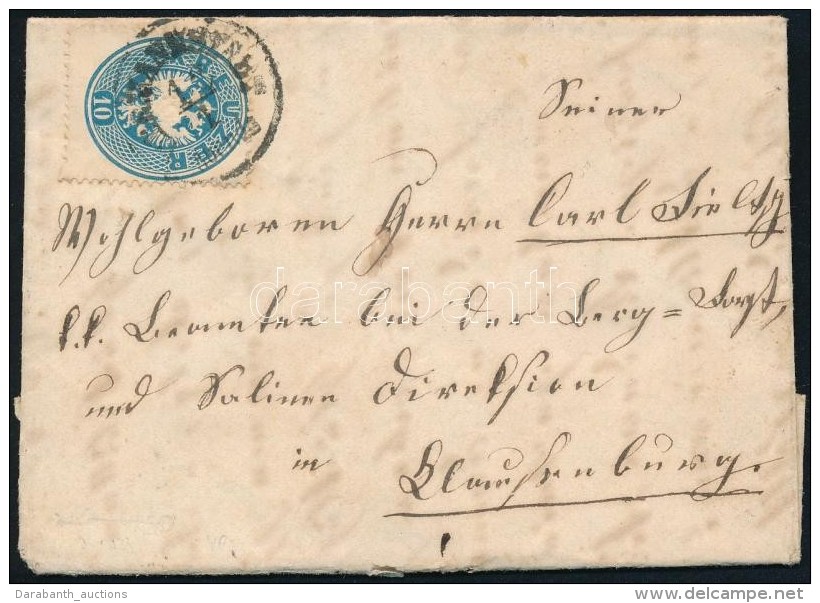 10 KREUZER
Seiner
Wohlgeboren Herrn Carl Fieltsch
k.k. Beamten bei der Berg = Forst,
und Salinen Direktion
in
Clausenburg.
darabanth
Darabanth_auctions
www.delcampe.net